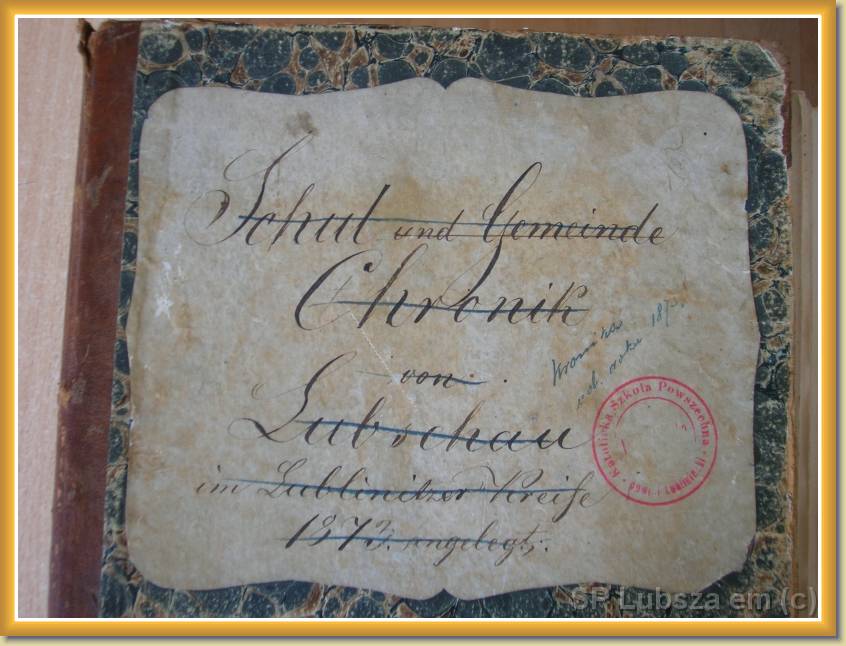 Schul und Gemeinde
Chronik
von
Lubschau
im Lublinitzer Kreise
1873. angelegt.
Kronika
od roku 1873
Katolicka Szkoła Powszechna
SP Lubsza em (c)